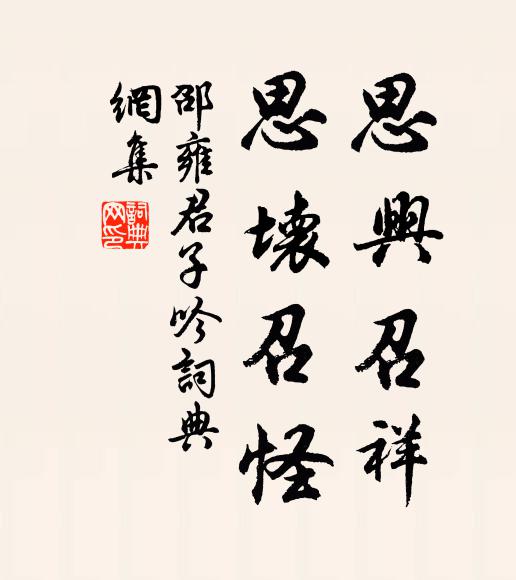 思興召祥
思壞召怪
邵雍君子吟詞典
網集
詞典
网印